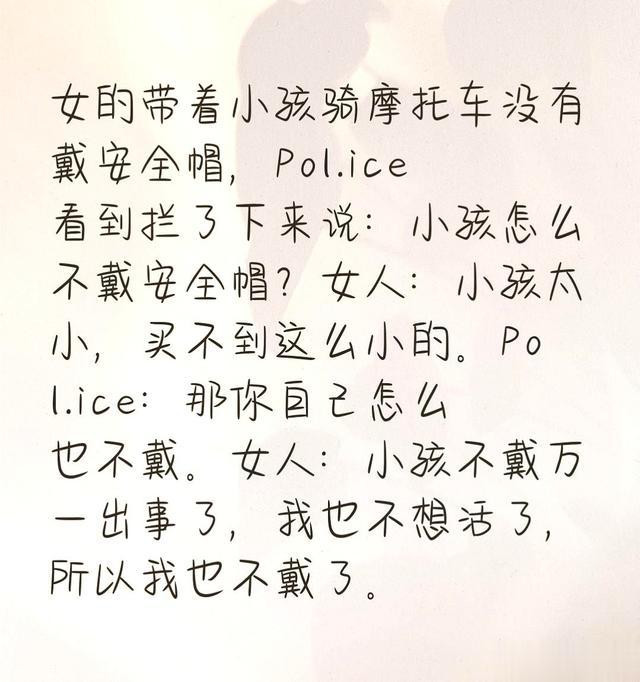 女的带着小孩骑摩托车没有
戴安全帽，Pol.ice
看到拦了下来说：小孩怎么
不戴安全帽？女人：小孩太
小，买不到这么小的。Po
l.ice：那你自己怎么
也不戴。女人：小孩不戴万
一出事了，我也不想活了，
所以我也不戴了。